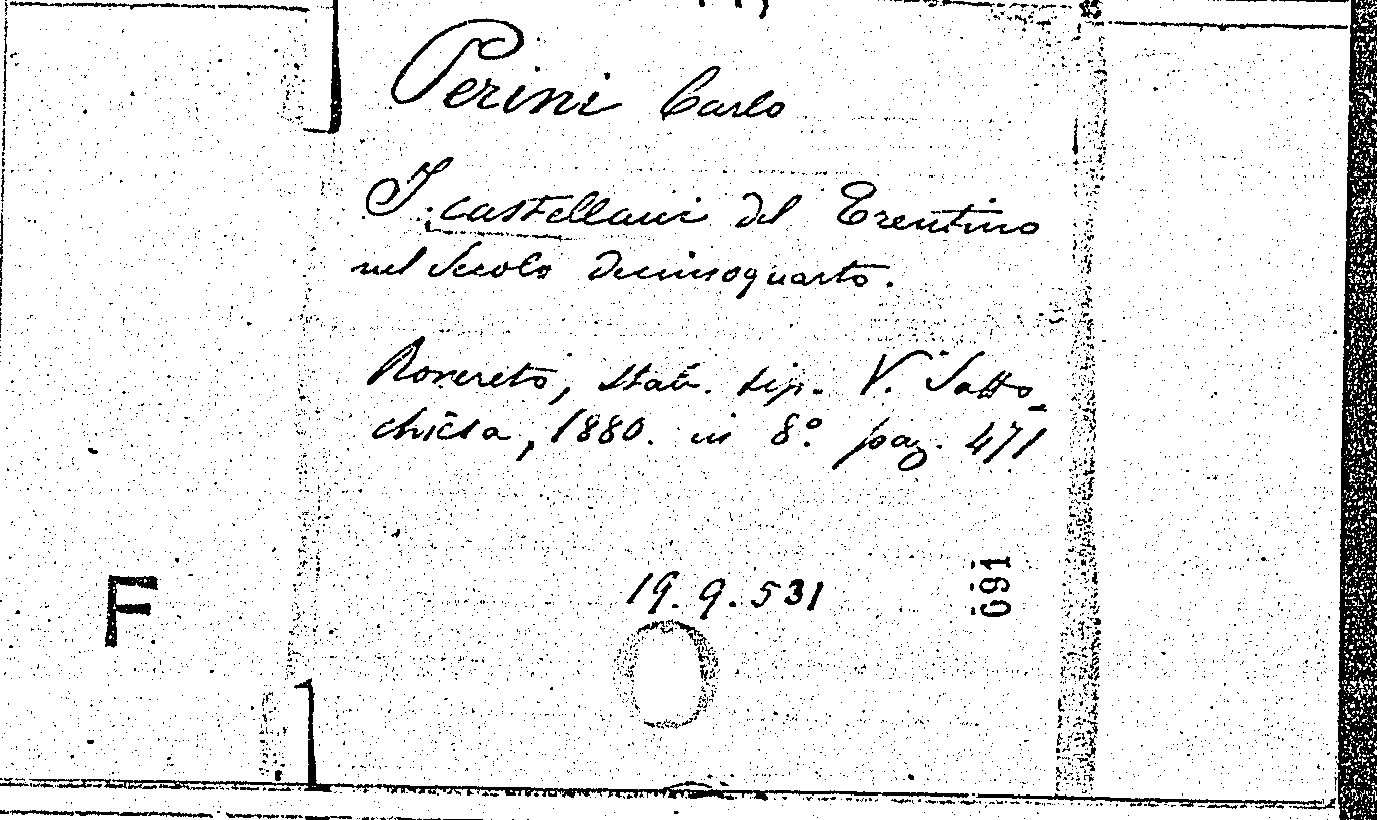 Perini Carlo
I castellani del Trentino
nel Secolo decimoquarto.
Rovereto, Stab. tip. V. Sotto-
chiesa, 1880. in 8.° pag. 471
19. 9. 531
691
F